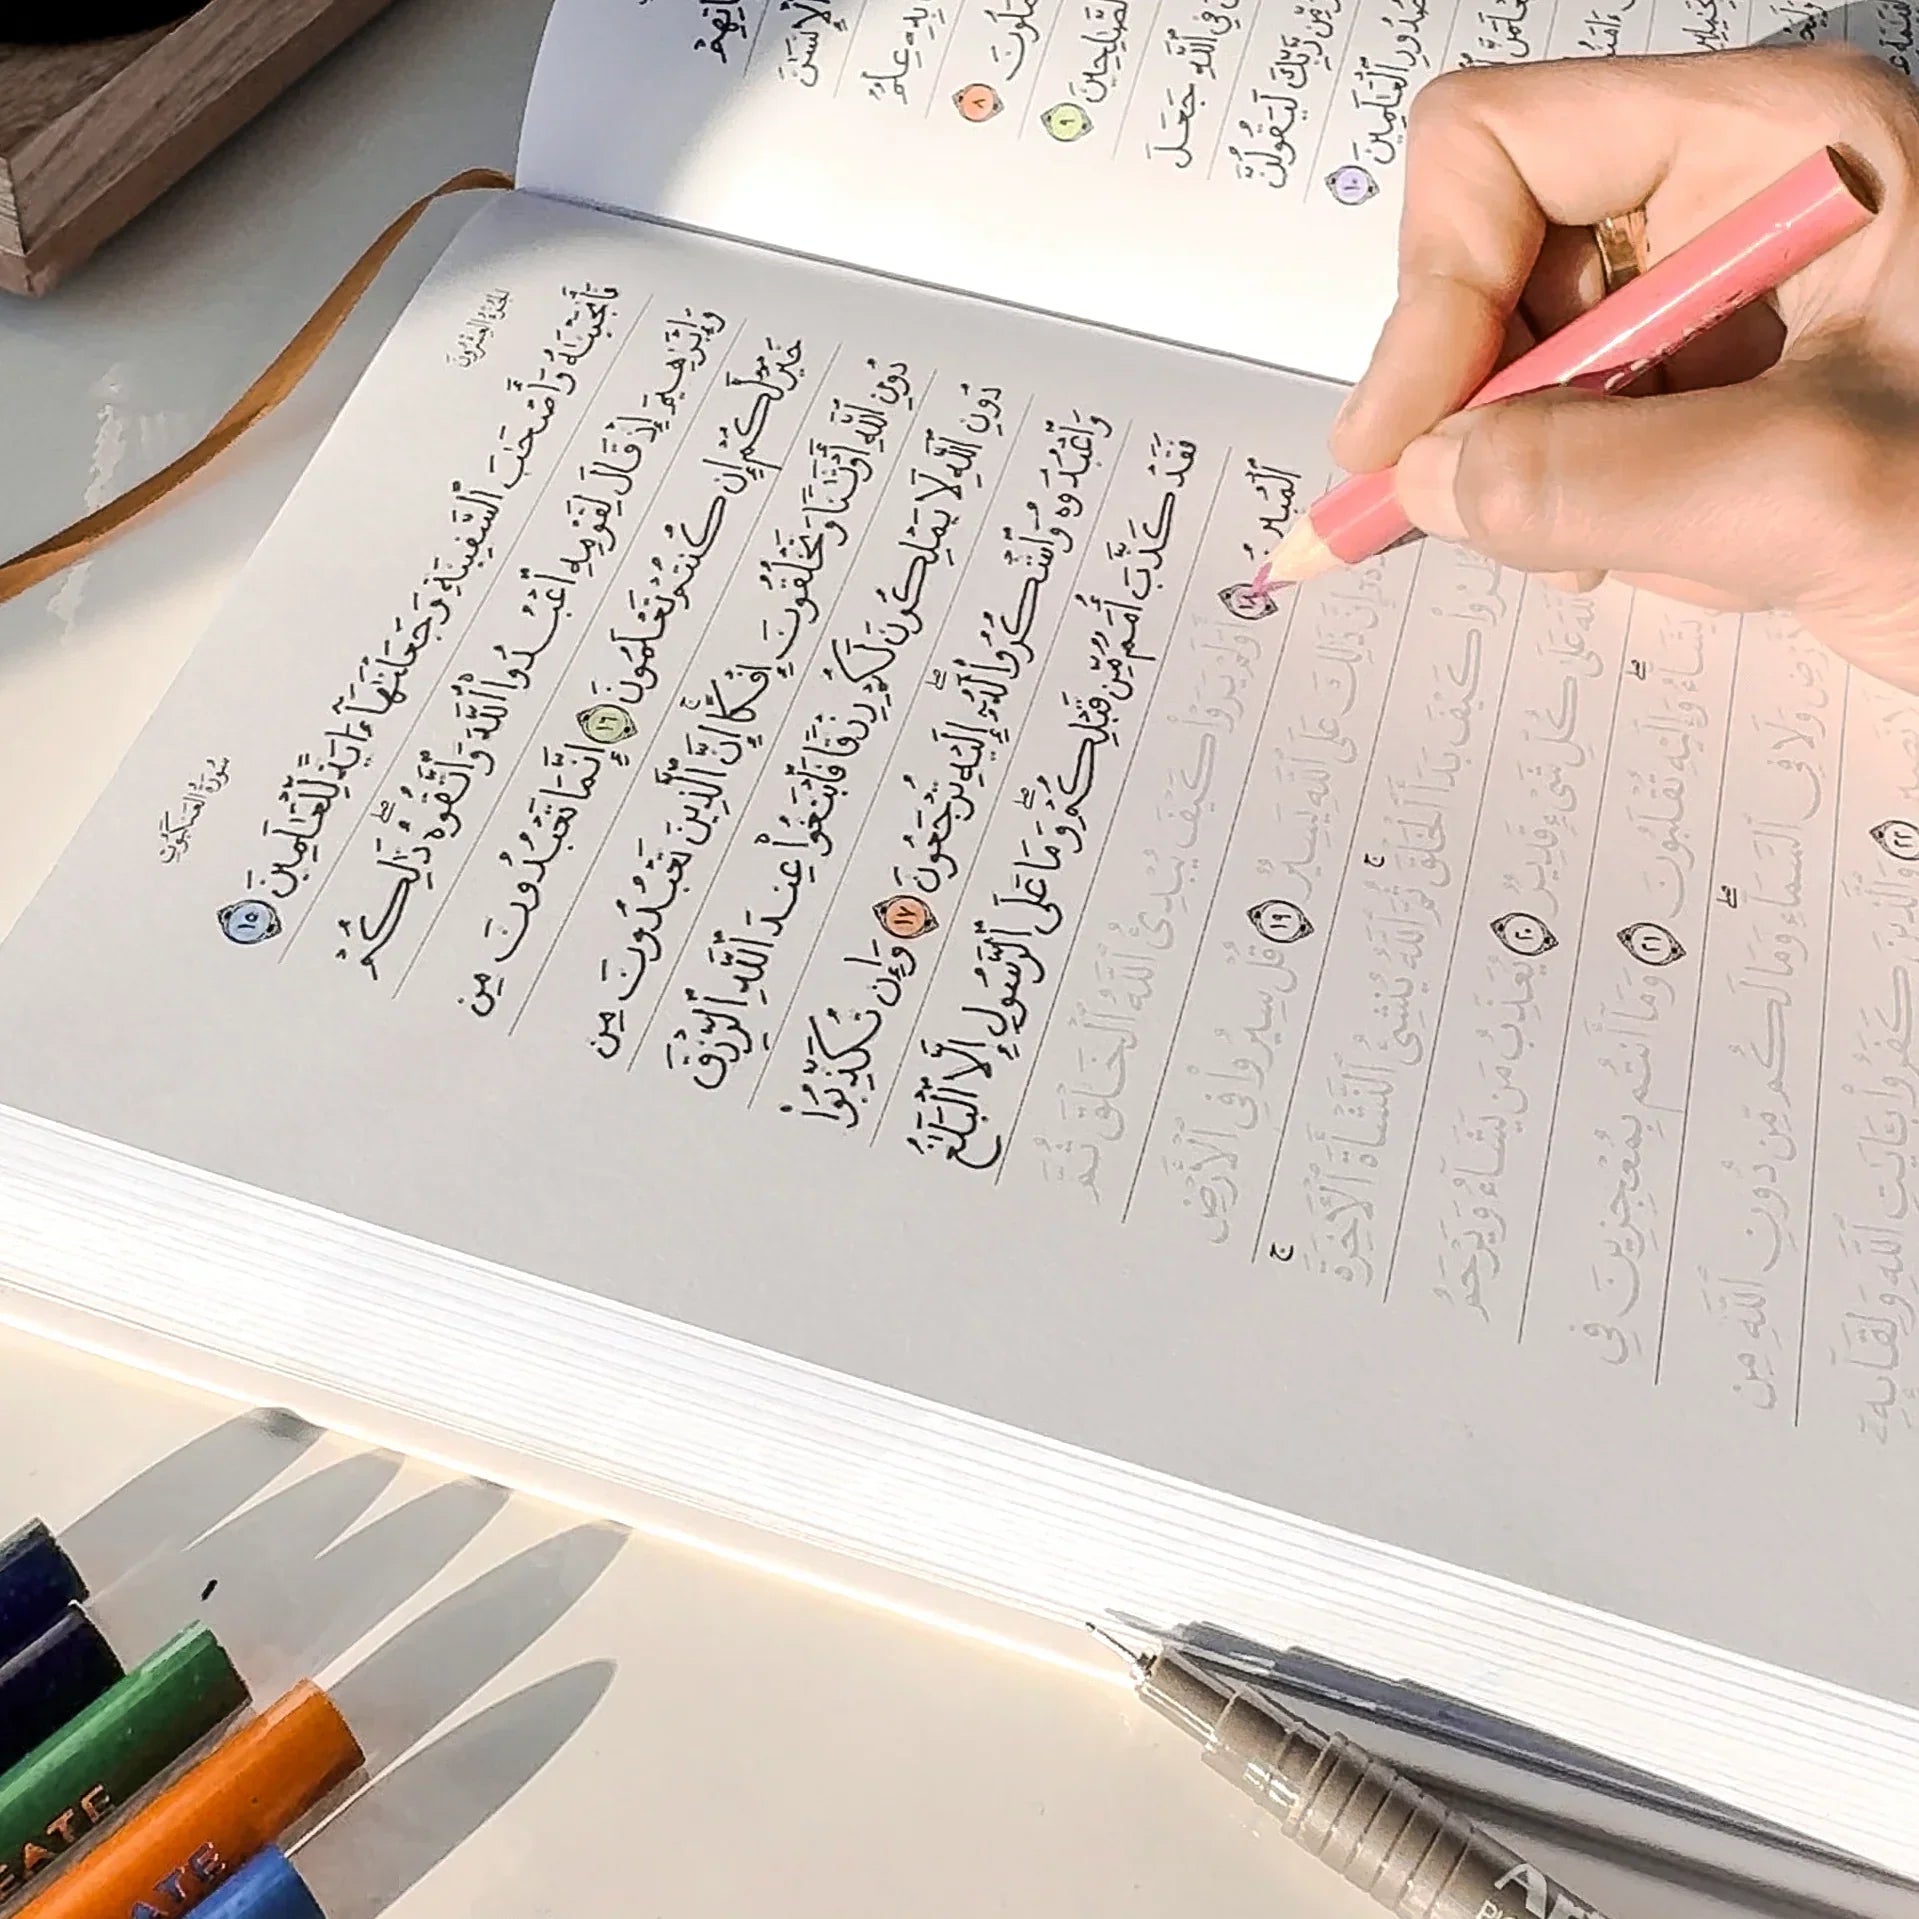 ٱلْإِنسَٰنَ
بِهِۦ عِلْمٌ
٨
ٱلصَّٰلِحِينَ ٩
فِى ٱللَّهِ جَعَلَ
مِّن رَّبِّكَ لَيَقُولُنَّ
صُدُورِ ٱلْعَٰلَمِينَ ١٠
الجزء العشرون
سورة العنكبوت
فَأَنجَيْنَٰهُ وَأَصْحَٰبَ ٱلسَّفِينَةِ وَجَعَلْنَٰهَآ ءَايَةً لِّلْعَٰلَمِينَ ١٥
وَإِبْرَٰهِيمَ إِذْ قَالَ لِقَوْمِهِ ٱعْبُدُوا۟ ٱللَّهَ وَٱتَّقُوهُ ۖ ذَٰلِكُمْ
خَيْرٌ لَّكُمْ إِن كُنتُمْ تَعْلَمُونَ ١٦ إِنَّمَا تَعْبُدُونَ مِن
دُونِ ٱللَّهِ أَوْثَٰنًا وَتَخْلُقُونَ إِفْكًا ۚ إِنَّ ٱلَّذِينَ تَعْبُدُونَ مِن
دُونِ ٱللَّهِ لَا يَمْلِكُونَ لَكُمْ رِزْقًا فَٱبْتَغُوا۟ عِندَ ٱللَّهِ ٱلرِّزْقَ
وَٱعْبُدُوهُ وَٱشْكُرُوا۟ لَهُۥٓ ۖ إِلَيْهِ تُرْجَعُونَ ١٧ وَإِن تُكَذِّبُوا۟
فَقَدْ كَذَّبَ أُمَمٌ مِّن قَبْلِكُمْ ۖ وَمَا عَلَى ٱلرَّسُولِ إِلَّا ٱلْبَلَٰغُ
ٱلْمُبِينُ ١٨ أَوَلَمْ يَرَوْا۟ كَيْفَ يُبْدِئُ ٱللَّهُ ٱلْخَلْقَ ثُمَّ
إِنَّ ذَٰلِكَ عَلَى ٱللَّهِ يَسِيرٌ ١٩ قُلْ سِيرُوا۟ فِى ٱلْأَرْضِ
كَيْفَ بَدَأَ ٱلْخَلْقَ ۚ ثُمَّ ٱللَّهُ يُنشِئُ ٱلنَّشْأَةَ ٱلْءَاخِرَةَ ۚ
ٱللَّهَ عَلَىٰ كُلِّ شَىْءٍ قَدِيرٌ ٢٠ يُعَذِّبُ مَن يَشَآءُ وَيَرْحَمُ
يَشَآءُ ۖ وَإِلَيْهِ تُقْلَبُونَ ٢١ وَمَآ أَنتُم بِمُعْجِزِينَ فِى
وَلَا فِى ٱلسَّمَآءِ ۖ وَمَا لَكُم مِّن دُونِ ٱللَّهِ مِن
٢٢ وَٱلَّذِينَ كَفَرُوا۟ بِـَٔايَٰتِ ٱللَّهِ وَلِقَآئِهِۦٓ